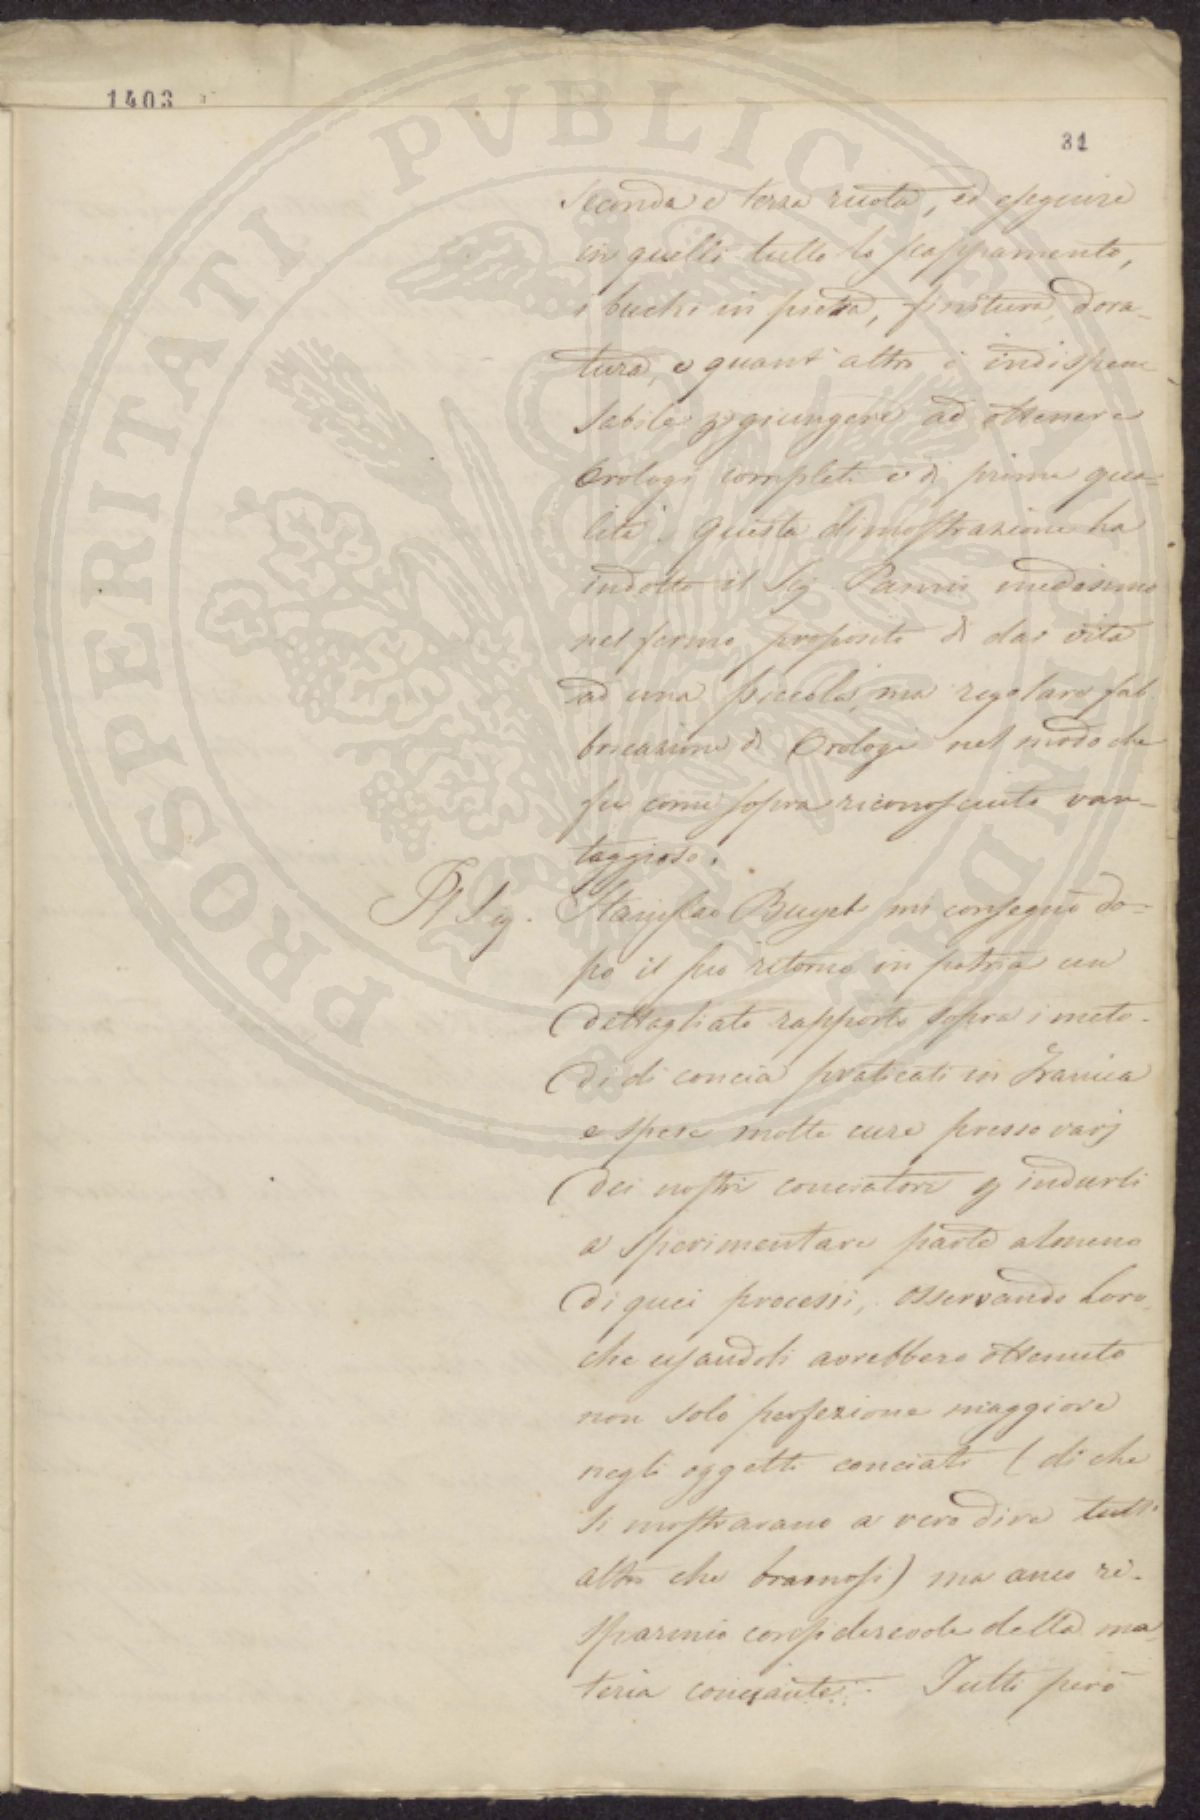 1403
31
seconda e terza ruota, ed eseguire
in quelli tutto lo scappamento,
i buchi in pietra, finitura, dora-
tura, e quant'altro è indispen
sabile p giungere ad ottenere
Orologi completi e di prima qua-
lità. Questa dimostrazione ha
indotto il Sig. medesimo
nel fermo proposito di dar vita
ad una piccola, ma regolare fab
bricazione di Orologi nel modo che
fu come sopra riconosciuto van-
taggioso.
Il Sig. Stanislao mi consegnò do-
po il suo ritorno in patria un
dettagliato rapporto sopra i meto-
di di concia praticati in Francia
e spese molte cure presso varj
dei nostri conciatori p indurli
a sperimentare parte almeno
di quei processi, osservando loro
che usandoli avrebbero ottenuto
non solo perfezione maggiore
negli oggetti conciati (di che
si mostrarano a vero dire tutt'
altro che bramosi) ma anco ri-
sparmio considerevole della ma
teria conciante. Tutti però
PROSPERITATI PVBLICAE